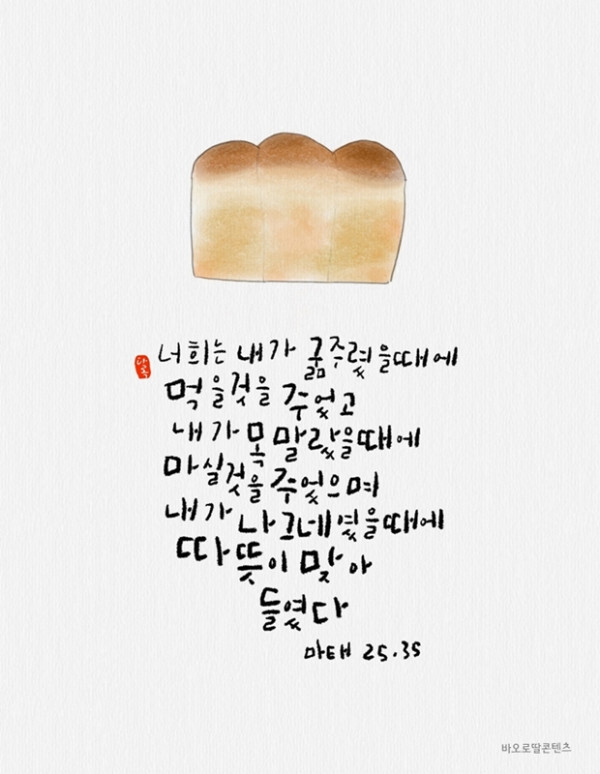 너희는 내가 굶주렸을때에
먹을것을 주었고
내가 목말랐을때에
마실것을 주었으며
내가 나그네였을때에
따뜻이 맞아
들였다
마태 25.35
바오로딸콘텐츠